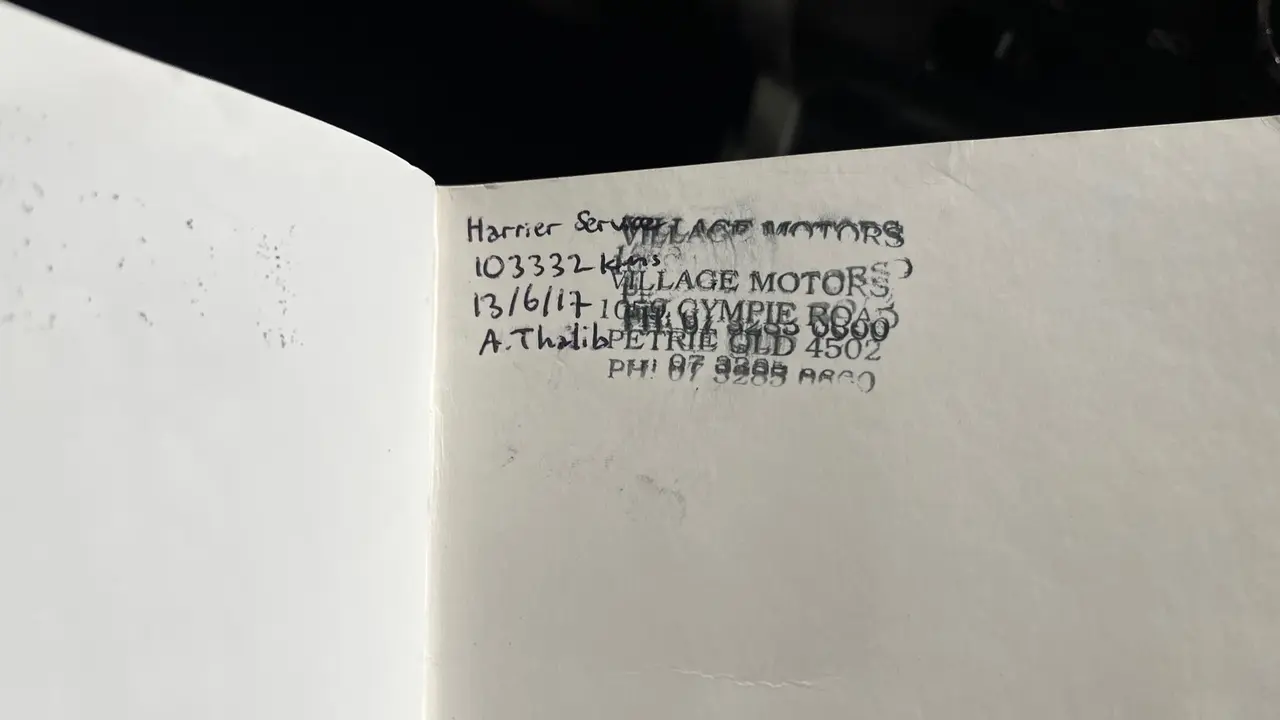 Harrier Service
103332 kms
13/6/17
A. Thalib
VILLAGE MOTORS
VILLAGE MOTORS
GYMPIE ROAD
PETRIE QLD 4502
PH: 07 3285